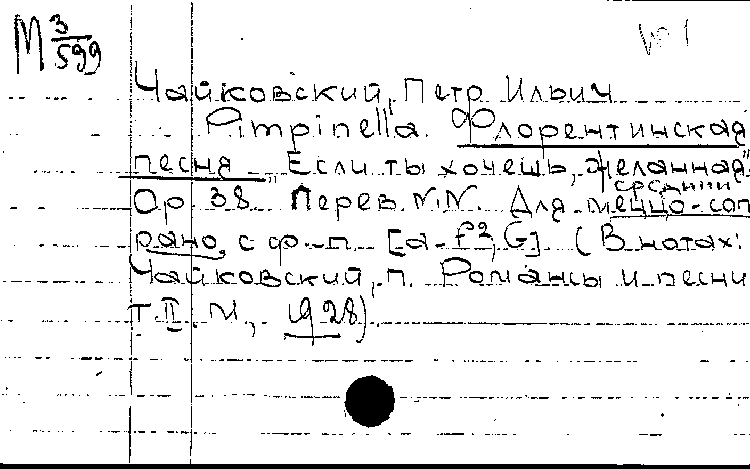 М 3/599
№ 1
Чайковский, Петр Ильич
Pimpinella. Флорентинская
песня „Если ты хочешь, желанная"
Op 38. Перев. N.N. Для меццо-соп
средний
рано с ф.-п. [a-f2, G] (В нотах:
Чайковский, П. Романсы и песни
Т. II. М., 1928).